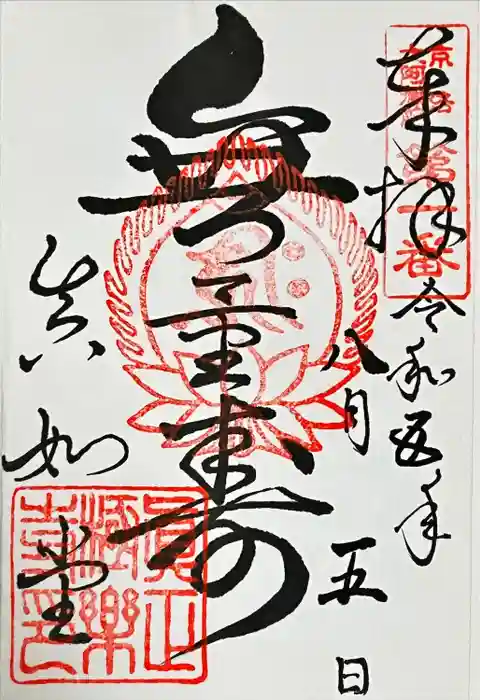 第一番
奉拝
令和五年
八月五日
無量壽
真如堂
眞正
極樂
寺印